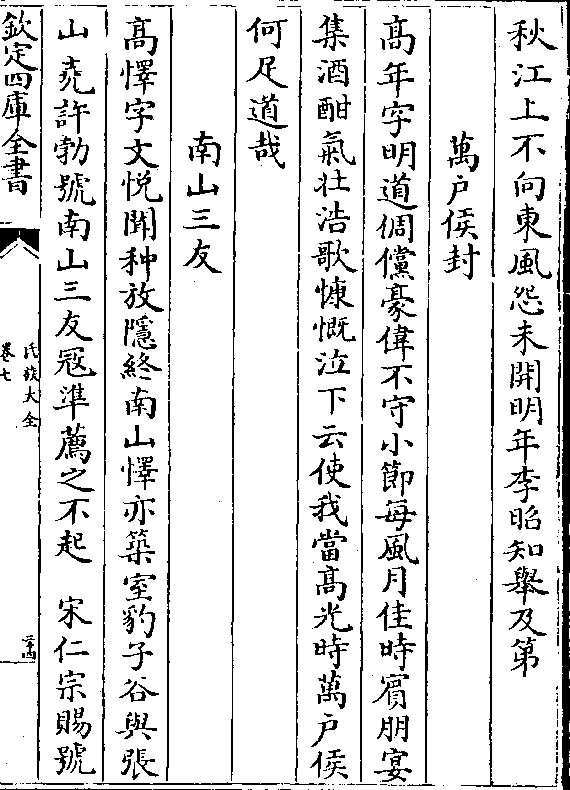 秋江上不向東風怨未開明年李昭知舉及第
萬户侯封
髙年字明道倜儻豪偉不守小節每風月佳時賓朋宴
集酒酣氣壯浩歌慷慨泣下云使我當髙光時萬户侯
何足道哉
南山三友
髙懌字文悦聞种放隱終南山懌亦築室豹子谷與張
山堯許勃號南山三友冦準薦之不起　宋仁宗賜號
欽定四庫全書
氏族大全
卷七
二十四